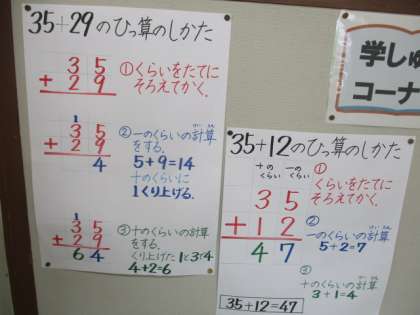 35+29のひっ算のしかた
35
+29
①くらいをたてに
そろえてかく。
1
35
+29
4
②一のくらいの計算
をする。
5+9=14
十のくらいに
1くり上げる。
1
35
+29
64
③十のくらいの計算
をする。
くり上げた1と3で4
4+2=6
学しゅ
コーナ
35+12のひっ算のしかた
十の
くらい
一の
くらい
35
+12
47
①
くらいをたてに
そろえてかく。
②
一のくらいの計算
5+2=7
③
十のくらいの計算
3+1=4
35+12=47